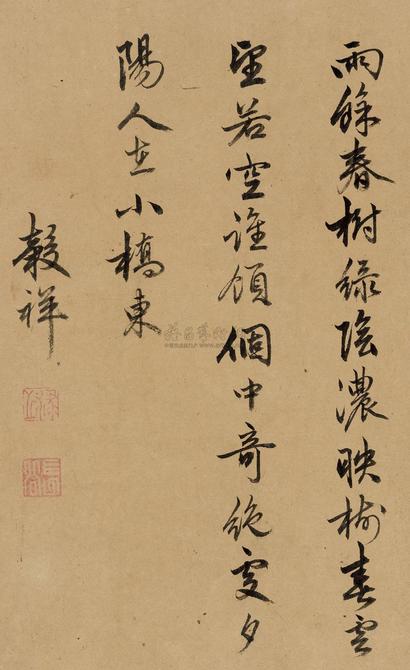 雨餘春樹綠陰濃映樹春雲
望若空誰領個中奇絕處夕
陽人在小橋東
穀祥